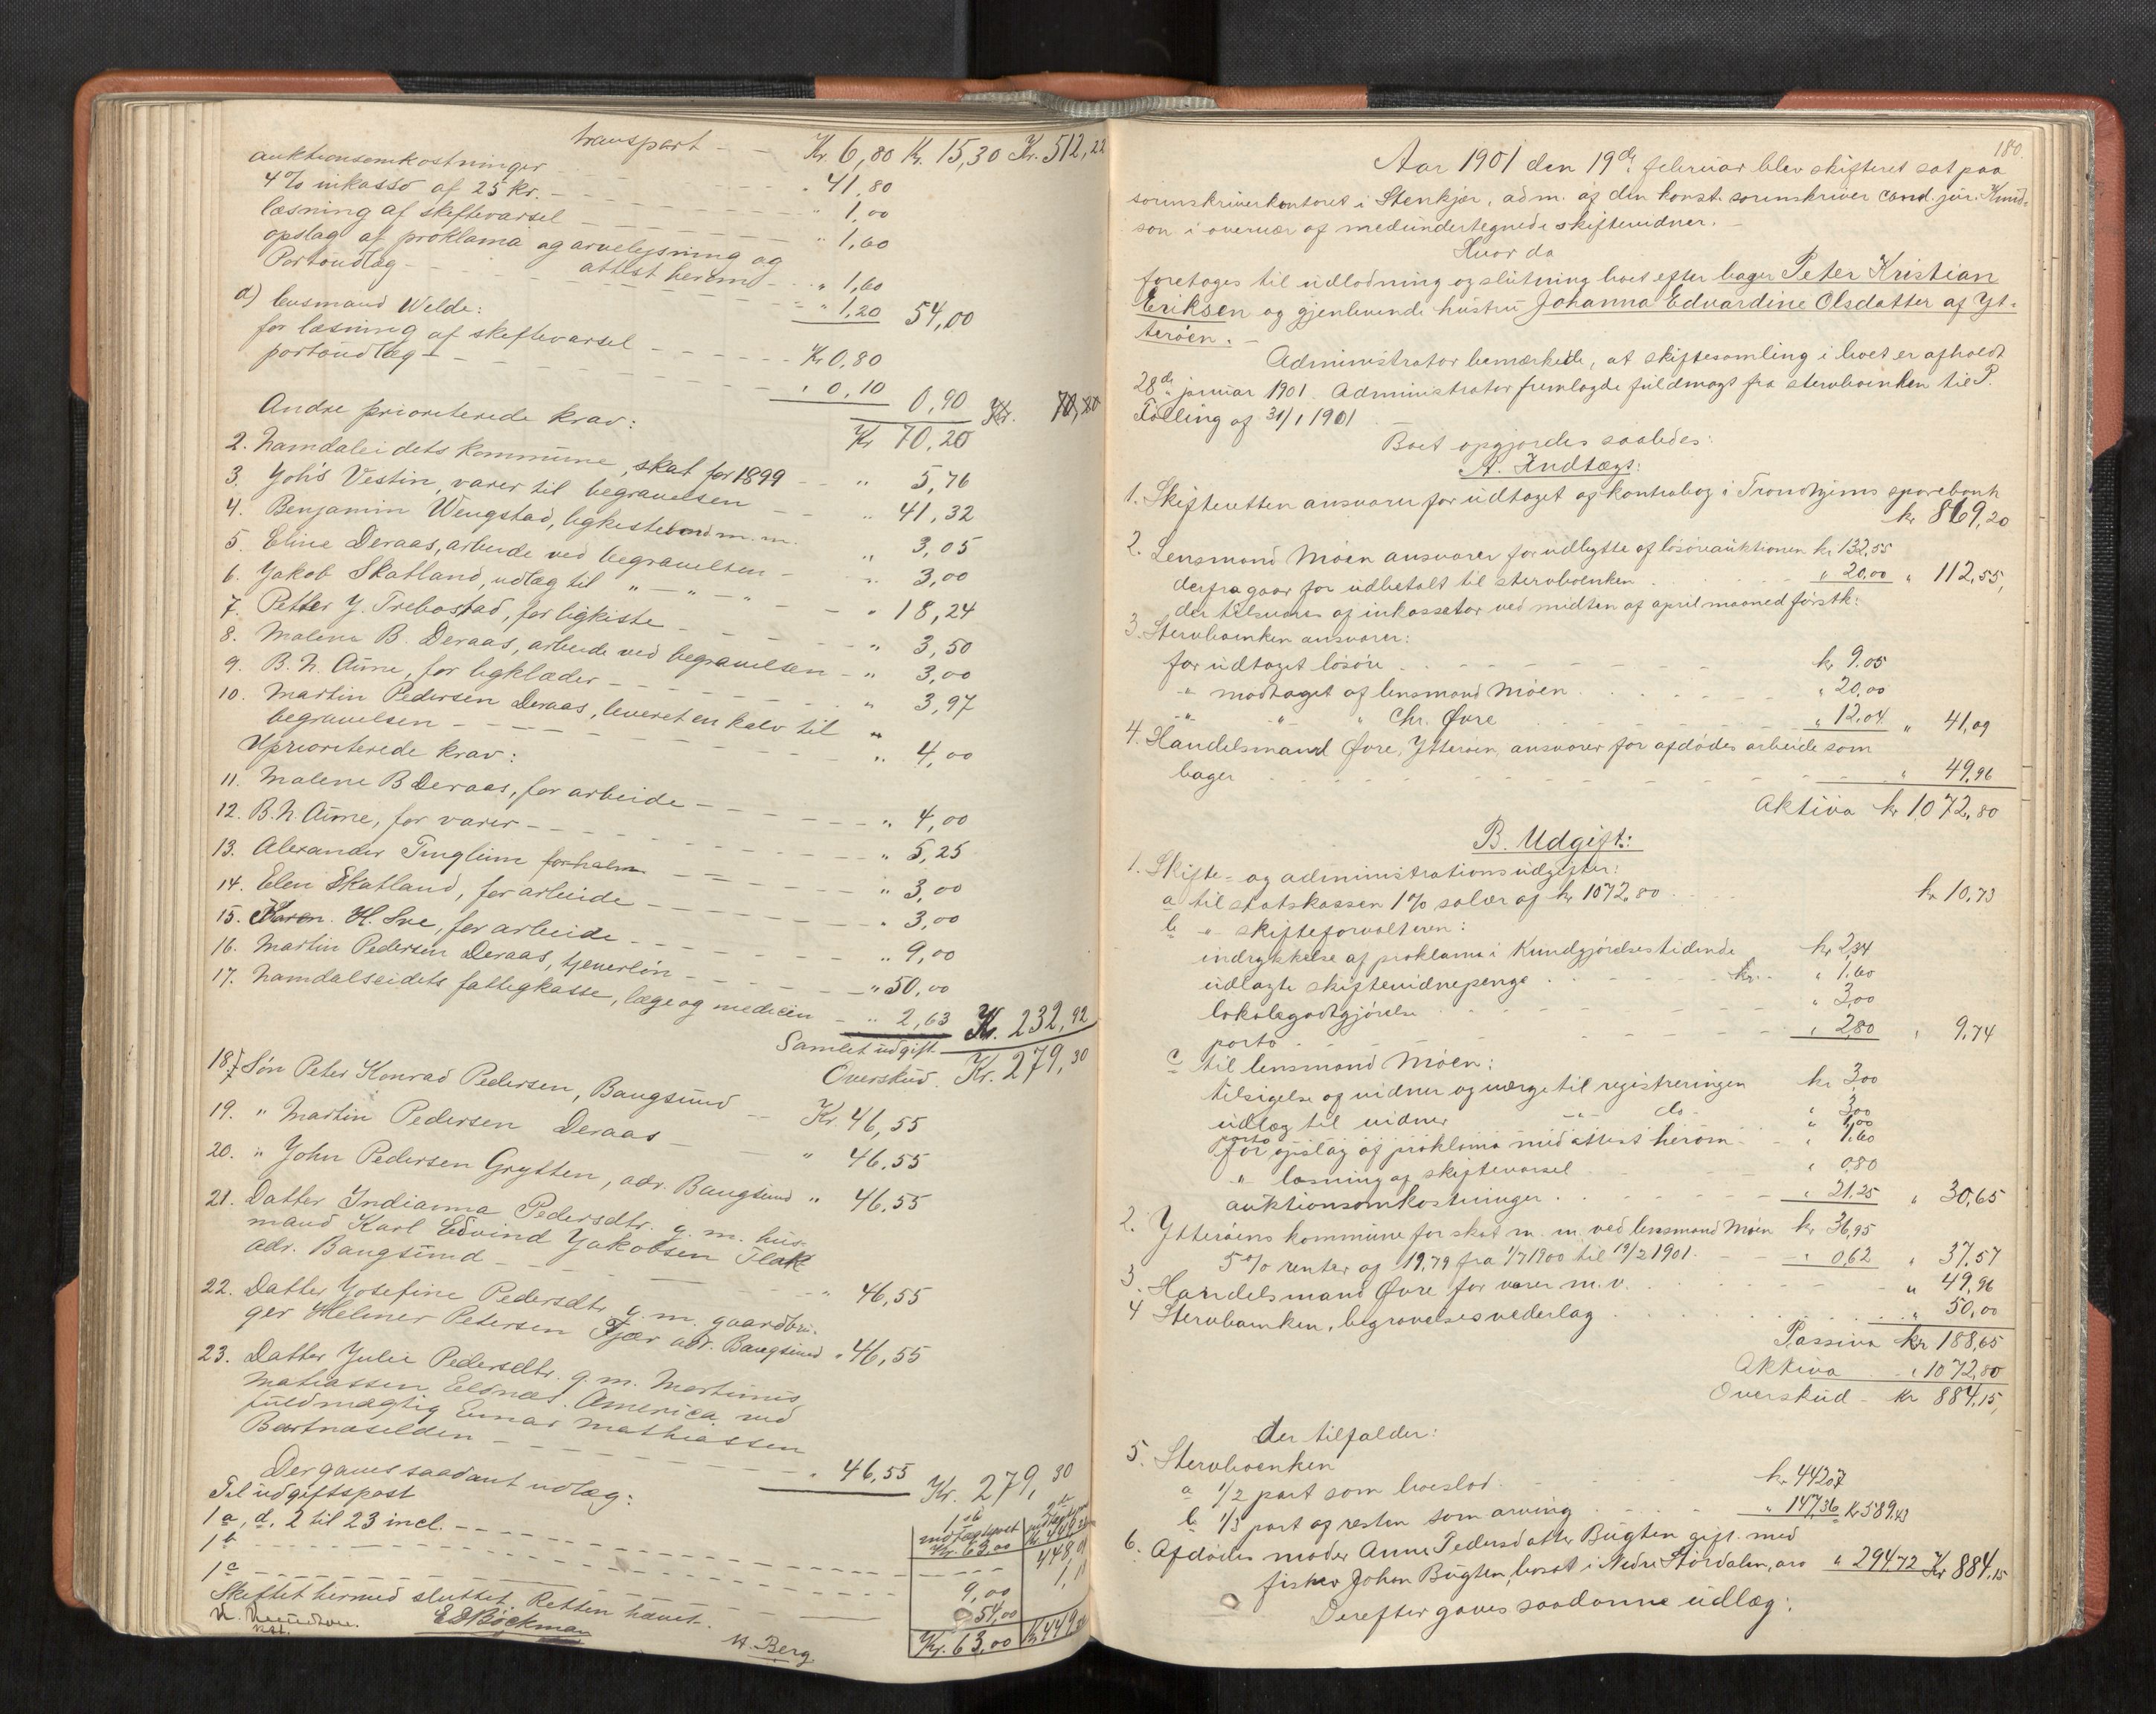 transport - - Kr. 6,80 Kr. 15,30 Kr. 512,22
auktionsomkostninger - - - " 41,80
4% inkasso af 25 kr. - - - " 1,00
læsning af skiftevarsel - - - " 1,60
opslag af proklama og arvelysning og
attest herom - - " 1,60
Portoudlæg - - - " 1,20 54,00
d) lensmand Welde:
for læsning af skiftevarsel - - - Kr 0,80
portoudlæg - - - " 0,10 0,90
Kr 70,20
Andre prioriterede krav:
2. Namdalseidets kommune, skat for 1899 - - " 5,76
3. Johs Vestin, varer til begravelsen - - " 41,32
4. Benjamin Wengstad, ligkistebaand m.m. " 3,05
5. Eline Deraas, arbeide ved begravelsen - " 3,00
6. Jakob Skatland, udlæg til " - " - " - - " 18,24
7. Petter J. Trebostad, for ligkiste - - - " 3,50
8. Malene B. Deraas, arbeide ved begravelsen - " 3,00
9. B. N. Aune, for ligklæder - - - " 3,97
10. Martin Pedersen Deraas, leveret en kalv til
begravelsen - - - " 4,00
Uprioriterede krav:
11. Malene B Deraas, for arbeide - - - " 4,00
12. B. N. Aune, for varer - - - " 5,25
13. Alexander Tinglum for halm - - - " 3,00
14. Elen Skatland, for arbeide - - - " 3,00
15. Karen H. Sve, for arbeide - - - " 9,00
16. Martin Pedersen Deraas, tjenerløn - - " 50,00
17. Namdalseidets fattigkasse, læge og medicin - " 2,63 Kr. 232,92
Samlet udgift
Overskud. Kr. 279,30
18. Søn Peter Konrad Pedersen, Bangsund - Kr. 46,55
19. " Martin Pedersen Deraas - " 46,55
20. " John Pedersen Grytten, adr. Bangsund " 46,55
21. Datter Indianna Pedersdtr. g. m. hus-
mand Karl Edvind Jakobsen Flak
adr. Bangsund - - - " 46,55
22. Datter Josefine Pedersdtr. g. m. gaardbru-
ger Helmer Petersen Fjær adr. Bangsund " 46,55
23. Datter Julie Pedersdtr. g. m. Martinus
Mathiassen Eldnæs. America ved
fuldmægtig Einar Mathiassen
Bartnæselden - - - " 46,55 Kr. 279,30
Der gaves saadant udlæg:
Til udgiftspost
1 a, d, 2 til 23 incl. - - -
1 b - - - 9,00
1 c - - - 54,00
Kr. 63,00
Skiftet hermed sluttet. Retten hævet.
E D Bøckman
H. Berg
180.
Aar 1901 den 19de februar blev skifteret sat paa
sorenskriverkontoret i Stenkjær, adm. af den konst. sorenskriver cand. jur. Knud-
son i overvær af medundertegnede skiftevidner. -
Hvor da
foretages til udlodning og slutning boet efter bager Peter Kristian
Eriksen og gjenlevende hustru Johanna Edvardine Olsdatter af Yt-
terøen. -
Administrator bemærkede, at skiftesamling i boet er afholdt
28de januar 1901. Administrator fremlagde fuldmagt fra sterboenken til P.
Følling af 31/1 1901
Boet opgjordes saaledes:
A. Indtægt:
1. Skifteretten ansvarer for udtaget af kontrabog i Trondhjems sparebank
kr 869,20
2. Lensmand Moen ansvarer for udbytte af løsøreauktionen kr 132,55
derfra gaar for udbetalt til sterboenken . " 20,00 " 112,55,
der tilsvares af inkassator ved midten af april maaned førstk:
3. Sterboenken ansvarer:
for udtaget løsøre . - - - kr 9,05
-"- modtaget af lensmand Moen . . " 20,00
-"- " " Chr. Øvre . . " 12,04 " 41,09
4. Handelsmand Øvre, Ytterøen, ansvarer for afdødes arbeide som
bager - - - " 49,96
Aktiva kr 1072,80
B. Udgift:
1. Skifte- og administrationsudgifter:
a til statskassen 1% salær af kr 1072,80 . . kr 10,73
b " skifteforvalteren:
indrykkelse af proklama i Kundgjørelsestidende kr 2,34
udlagte skiftevidnepenge . . " 1,60
lokalegodtgjørelse . . " 3,00
porto . . " 2,80 " 9,74
c til lensmand Moen:
tilsigelse af vidner og værge til registreringen kr 3,00
udlæg til vidner -"- do - " 3,00
porto " 1,00
for opslag af proklama med attest herom - " 1,60
-"- læsning af skiftevarsel . . " 0,80
auktionsomkostninger . . " 21,25 " 30,65
2. Ytterøens kommune for skat m. m. ved lensmand Moen kr 36,95
5% renter af 19,79 fra 1/7 1900 til 19/2 1901. - " 0,62 " 37,57
3. Handelsmand Øvre for varer m. v. . . " 49,96
4 Sterboenken, begravelsesvederlag . . " 50,00
Passiva kr 188,65
Aktiva . . " 1072,80
Overskud - kr 884,15,
der tilfalder:
5. Sterboenken
a 1/2 part som boeslod . . kr 442,07
b 1/3 part af resten som arving . . " 147,36 Kr 589,43
6. Afdødes moder Anne Pedersdatter Bugten gift med
fisker Johan Bugten, bosat i Nedre Stördalen, arv " 294,72 Kr 884,15
Derefter gaves saadanne udlæg: